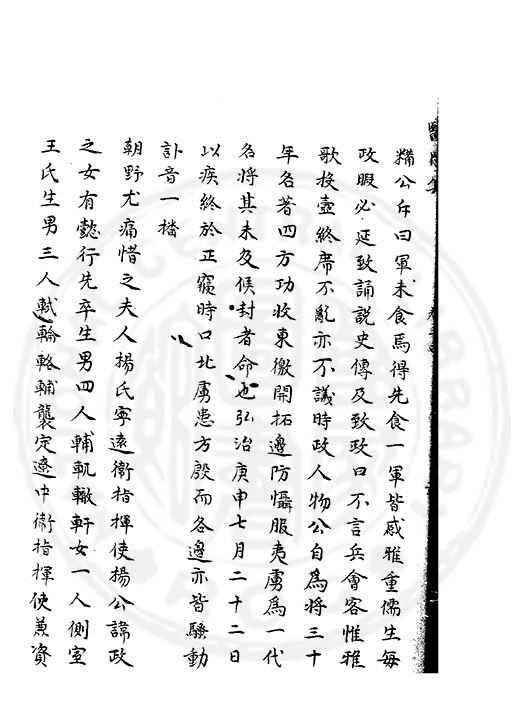 糒公斥曰軍未食馬得先食一軍皆感雅重儒生每
政暇必延致誦說史傳及致政口不言兵會客惟雅
歌投壺終席不亂亦不議時政人物公自為將三十
年名著四方功收東徼開拓邊防懾服夷虜為一代
名將其未及候封者命也弘治庚申七月二十二日
以疾終於正寢時口北虜患方殷而各邊亦皆騷動
訃音一播
朝野尤痛惜之夫人楊氏寧遠衛指揮使楊公諱政
之女有懿行先卒生男四人輔軏轍軒女一人側室
王氏生男三人軾輪輅輔襲定遼中衛指揮使兼資